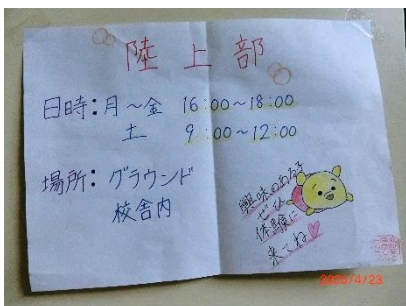 陸上部
日時：月～金 16:00～18:00
土 9:00～12:00
場所：グラウンド
校舎内
興味のある子
ぜひ
体験に
来てね♡
2020/4/23